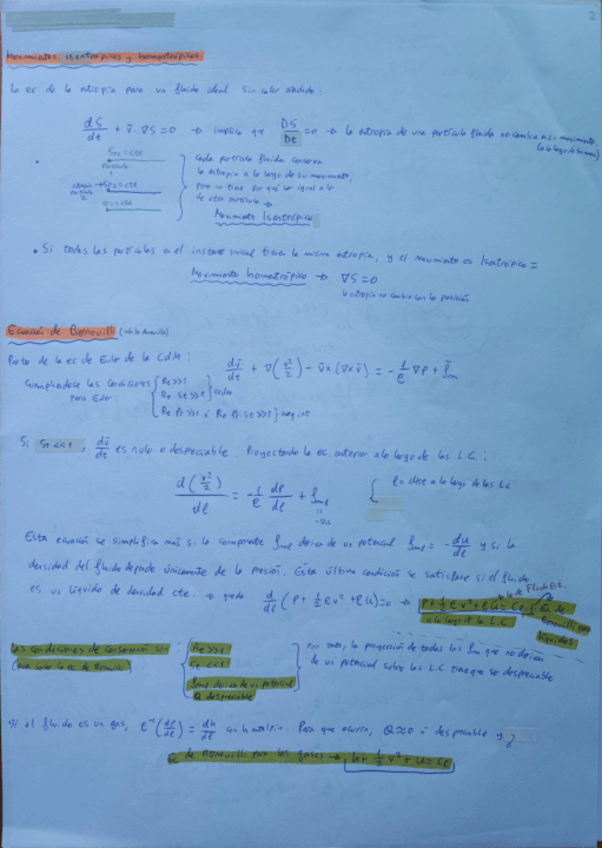 2
Movimientos isentrópicos y homentrópicos
La ec de la entropía para un fluido ideal sin calor añadido:
dS/dt + v̄·∇S = 0 → implica que DS/Dt = 0 → la entropía de una partícula fluida no cambia en su movimiento
Cada partícula fluida conserva
la entropía a lo largo de su movimiento,
pero no tiene por qué ser igual a la
de otra partícula →
Movimiento Isentrópico
• Si todas las partículas en el instante inicial tienen la misma entropía, y el movimiento es Isentrópico =
Movimiento homentrópico → ∇S = 0
la entropía no cambia con la posición
Ecuación de Bernouilli
Parto de la ec de Euler de la CdM: dv̄/dt + ∇(v²/2) - v̄×(∇×v̄) = -1/ρ ∇P + f̄m
cumpliéndose las condiciones para Euler { Re>>1
Re St>>1 } 
Re Pr>>1 ó Re Pr St>>1 }
Si St<<1, dv̄/dt es nulo o despreciable. Proyectando la ec. anterior a lo largo de las L.C:
d(v²/2)/dl = -1/ρ dP/dl + fml
l = dist a lo largo de las LC
Esta ecuación se simplifica más si la componente fml deriva de un potencial fml = -dU/dl y si la
densidad del fluido depende únicamente de la presión. Esta última condición se satisface si el fluido
es un líquido de densidad cte. → queda d/dl (P + ½ρv² + ρU) = 0 → P + ½ρv² + ρU = Ce } Ec de
a lo largo de la L.C. Bernouilli para
líquidos
Las condiciones de conservación son: { Re>>1
St<<1
fml deriva de un potencial
Q despreciable
Por tanto, la proyección de todas las fm que no derivan
de un potencial sobre las L.C tiene que ser despreciable
Si el fluido es un gas, ρ⁻¹(dP/dl) = dh/dl con h entalpía. Para que ocurra, Q≈0 ó despreciable y
Ec de Bernouilli para los gases → h + ½v² + U = Ce